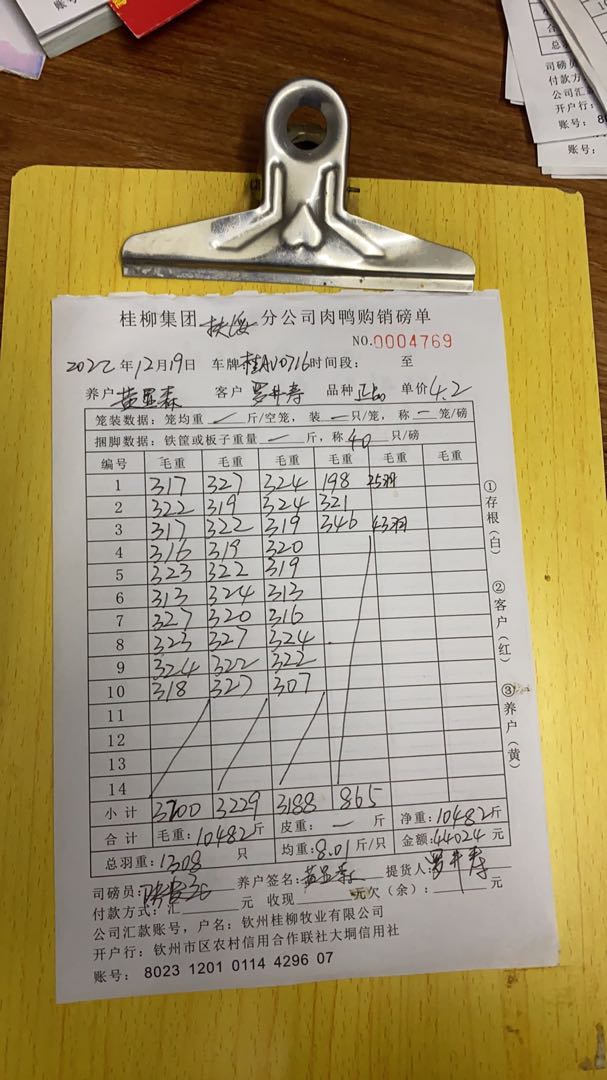 桂柳集团扶绥分公司肉鸭购销磅单
NO.0004769
2022年12月19日 车牌桂AV0716时间段： 至
养户黄显森 客户 罗井寿 品种正品 单价4.2
笼装数据：笼均重 — 斤/空笼，装 — 只/笼，称 — 笼/磅
捆脚数据：铁筐或板子重量 — 斤，称 40 只/磅
编号 毛重 毛重 毛重 毛重 毛重 毛重
1 317 327 324 198 25羽
2 322 319 324 321
3 317 322 319 346 43羽
4 316 319 320
5 323 322 319
6 313 324 313
7 327 320 316
8 323 327 324
9 324 322 322
10 318 327 307
11
12
13
14
小计 3200 3229 3188 865
合计 毛重：10482斤 皮重： — 斤 净重：10482斤
总羽重：1308 只 均重：8.01斤/只 金额：44024元
司磅员： 养户签名：黄显森 提货人：罗井寿
付款方式：汇 元 收现 元欠（余）： 元
公司汇款账号，户名：钦州桂柳牧业有限公司
开户行：钦州市区农村信用合作联社大垌信用社
账号：8023 1201 0114 4296 07
①存根（白）
②客户（红）
③养户（黄）
账号
总羽
司磅员
付款方
公司汇
开户行
账号：
账号：